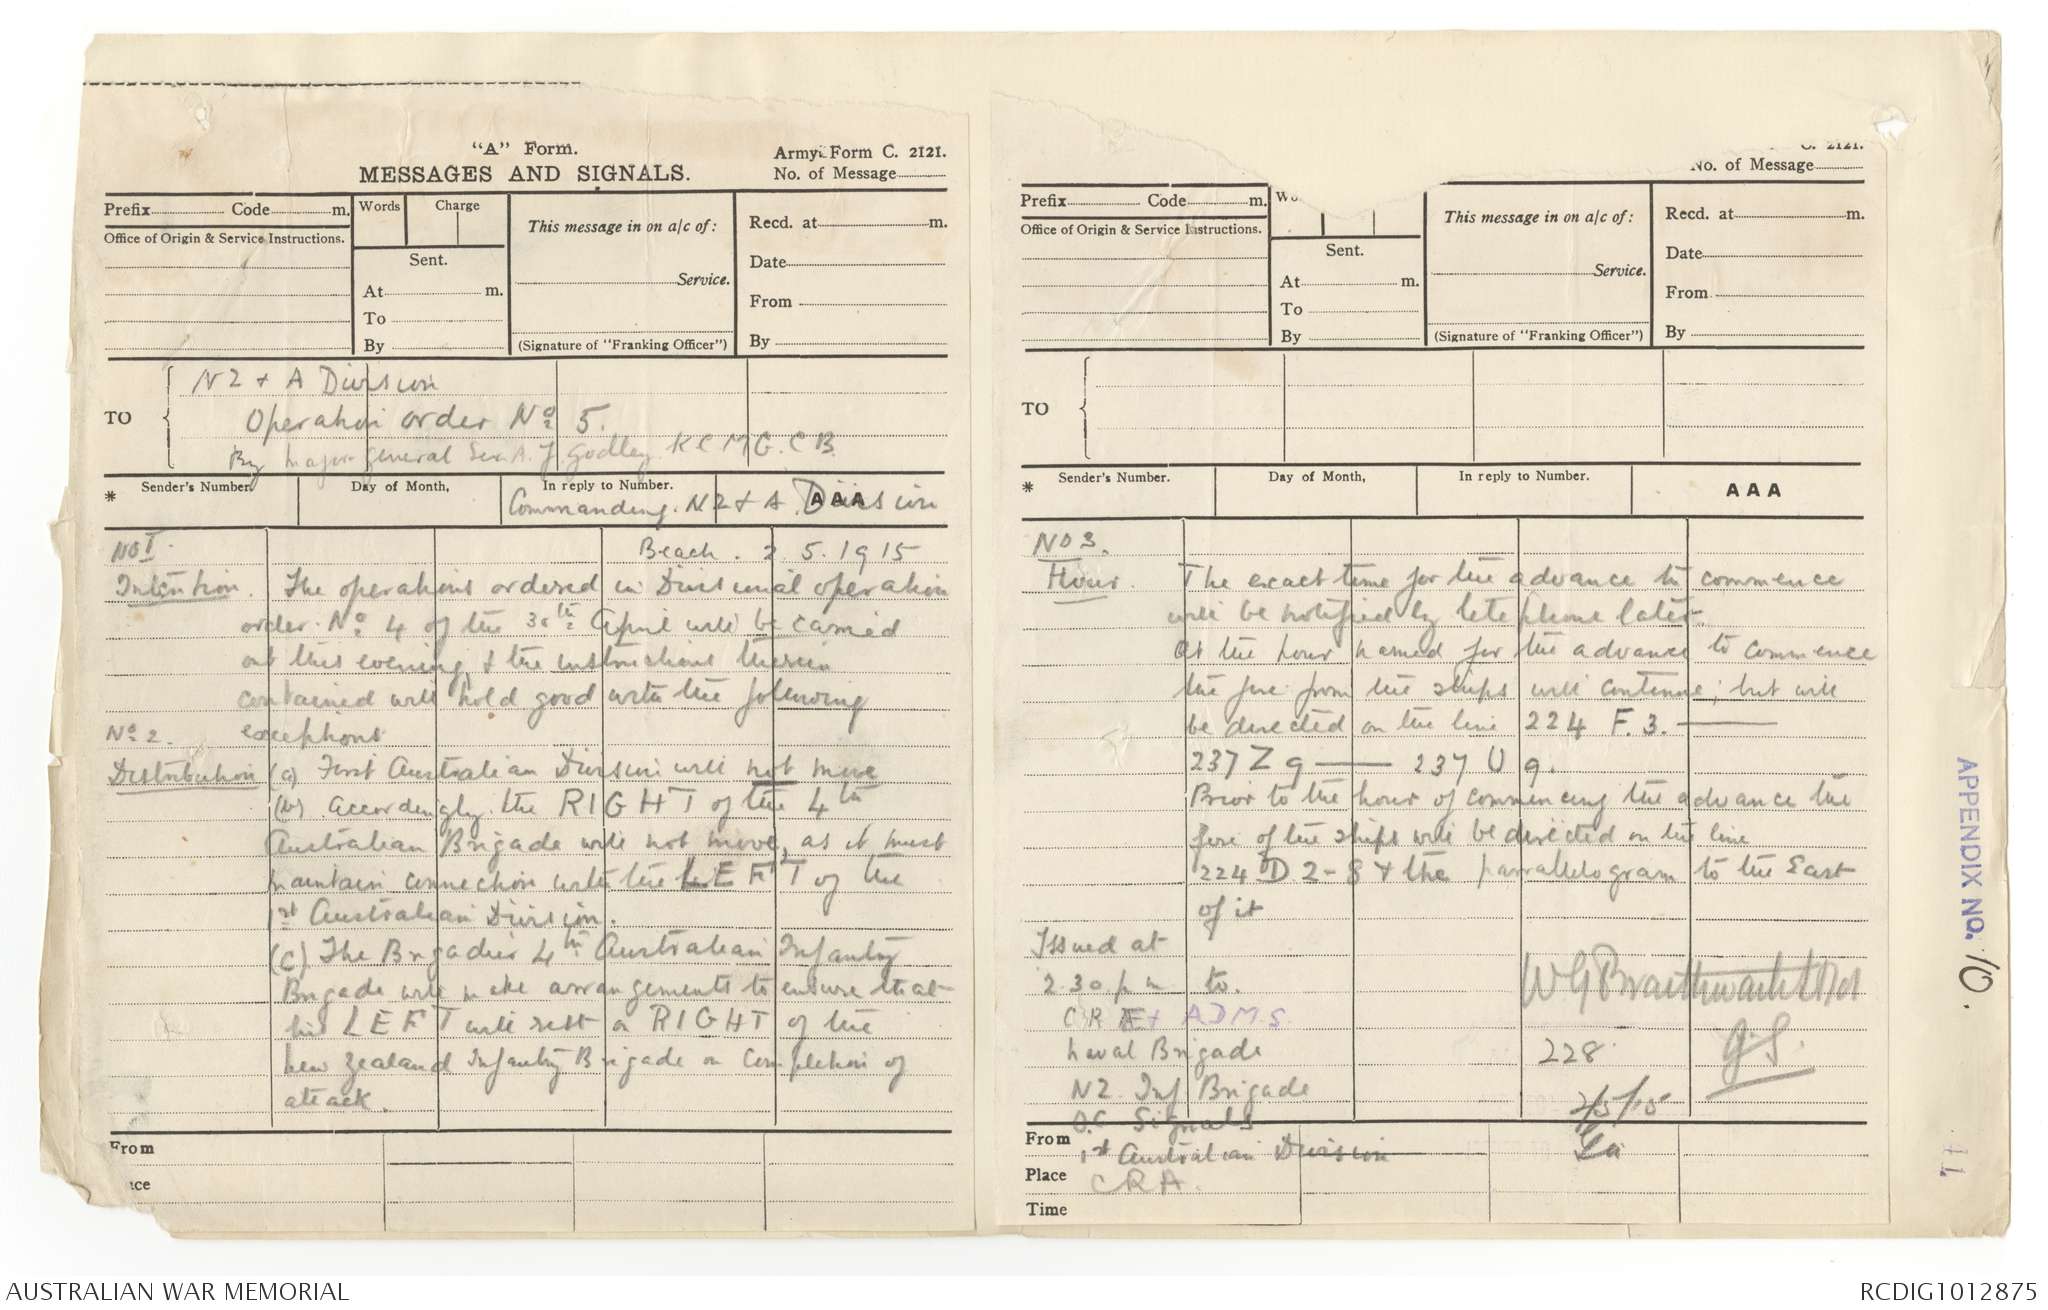 "A" Form.
MESSAGES AND SIGNALS.
Army Form C. 2121.
No. of Message
Prefix Code m.
Office of Origin & Service Instructions.
Words Charge
Sent.
At m.
To
By
This message in on a/c of:
Service.
(Signature of "Franking Officer")
Recd. at m.
Date
From
By
TO
NZ & A Division
Operation order No 5.
By Major General Sir A. J. Godley KCMG. CB.
* Sender's Number. Day of Month, In reply to Number. AAA
Commanding. NZ & A. Division
No 1. Beach. 2. 5. 1915
Intention. The operations ordered in Divisional operation
order No 4 of the 30th April will be carried
out this evening & the instructions therein
contained will hold good with the following
No 2. exceptions
Distribution (a) First Australian Division will not move
(b) Accordingly the RIGHT of the 4th
Australian Brigade will not move, as it must
maintain connection with the LEFT of the
1st Australian Division.
(c) The Brigadier 4th Australian Infantry
Brigade will make arrangements to ensure that
his LEFT will rest on RIGHT of the
New Zealand Infantry Brigade on completion of
attack.
From
ce
C. 2121.
No. of Message
Prefix Code m.
Office of Origin & Service Instructions.
Sent.
At m.
To
By
This message in on a/c of:
Service.
(Signature of "Franking Officer")
Recd. at m.
Date
From
By
TO
* Sender's Number. Day of Month, In reply to Number. AAA
No 3.
Hour. The exact time for the advance to commence
will be notified by telephone later.
At the hour named for the advance to commence
the fire from the ships will continue; but will
be directed on the line 224 F. 3. ——
237 Z 9 —— 237 U 9.
Prior to the hour of commencing the advance the
fire of the ships will be directed on the line
224 D. 2-8 & the parrallelogram to the East
of it
Issued at
2.30 p m to.
WG Braithwaite Lt Col
G.S.
CRE & ADMS.
Naval Brigade 228
NZ. Inf Brigade
2/5/15
O.C. Signals
1st Australian Division
CRA.
From
Place
Time
APPENDIX NO. 10.
11
AUSTRALIAN WAR MEMORIAL
RCDIG1012875